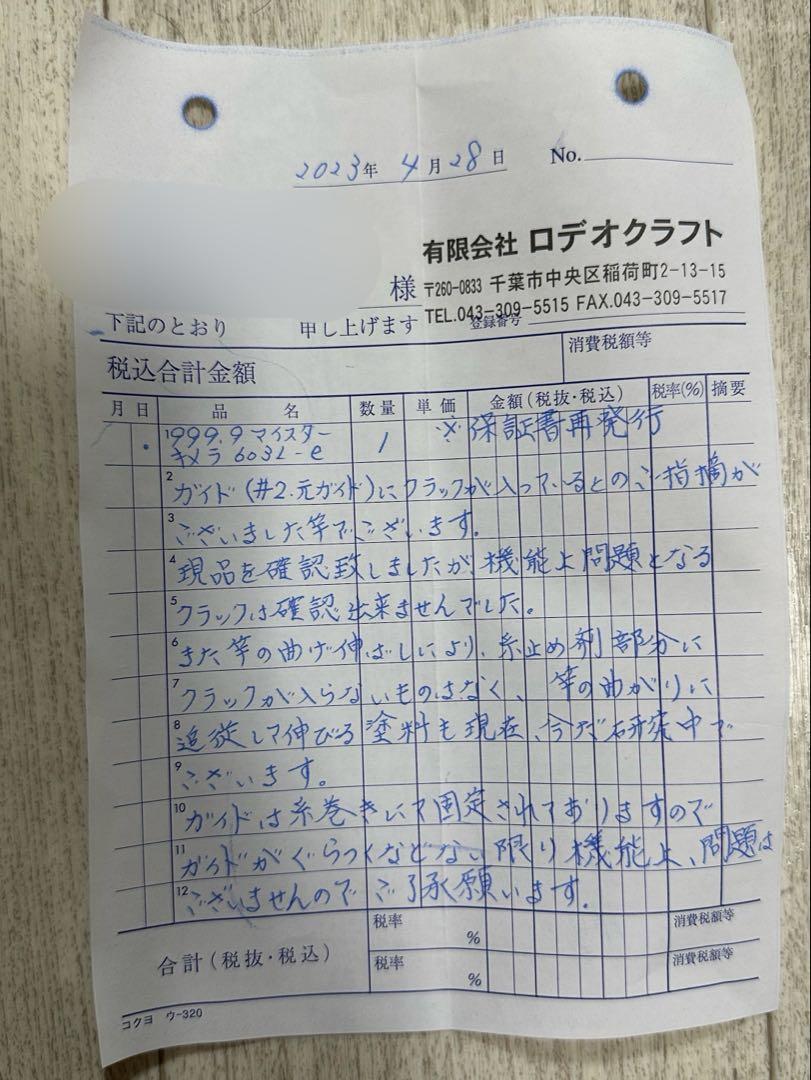 2023年 4月28日 No.
有限会社 ロデオクラフト
様 〒260-0833 千葉市中央区稲荷町2-13-15
TEL.043-309-5515 FAX.043-309-5517
下記のとおり 申し上げます 登録番号
税込合計金額 消費税額等
月 日 品 名 数量 単価 金額(税抜・税込) 税率(%) 摘要
1 999.9 マイスター ※保証書再発行
キメラ 603L-e 1
2 ガイド(#2.元ガイド)にクラックが入っているとのご指摘が
3 ございました竿でございます。
4 現品を確認致しましたが機能上問題となる
5 クラックは確認出来ませんでした。
6 また竿の曲げ伸ばしにより、糸止め剤部分に
7 クラックが入らないものはなく、竿の曲がりに
8 追従して伸びる塗料も現在、今だ研究中で
9 ございます。
10 ガイドは糸巻きにて固定されておりますので
11 ガイドがぐらつくなどない限り機能上、問題は
12 ございませんのでご了承願います。
税率 % 消費税額等
合計(税抜・税込)
税率 % 消費税額等
コクヨ ウ-320